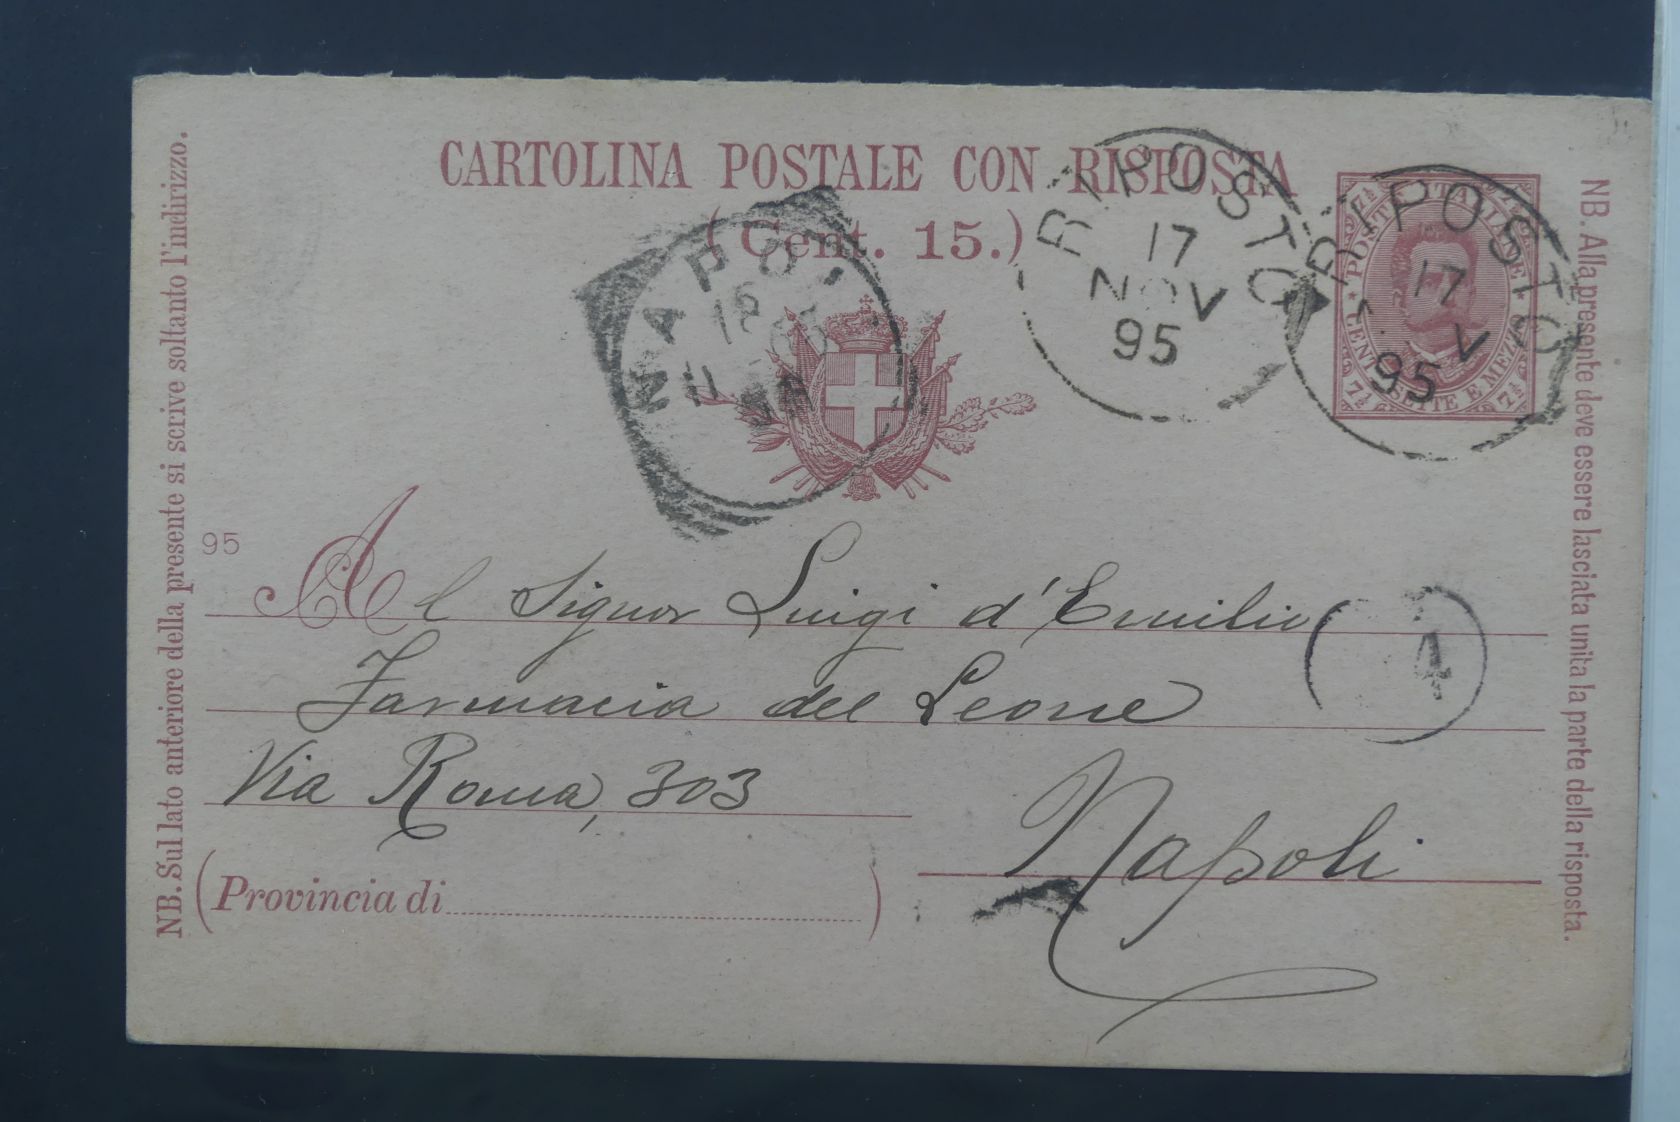 CARTOLINA POSTALE CON RISPOSTA
(Cent. 15.)
RIPOSTO
17
NOV
95
RIPOSTO
17
V
95
POSTE ITALIANE
CENT. SETTE E MEZZO
7½ 7½
NAPOLI
95
Al Signor Luigi d'Emilio
4
Farmacia del Leone
Via Roma, 303
Napoli
(Provincia di )
NB. Sul lato anteriore della presente si scrive soltanto l'indirizzo.
NB. Alla presente deve essere lasciata unita la parte della risposta.